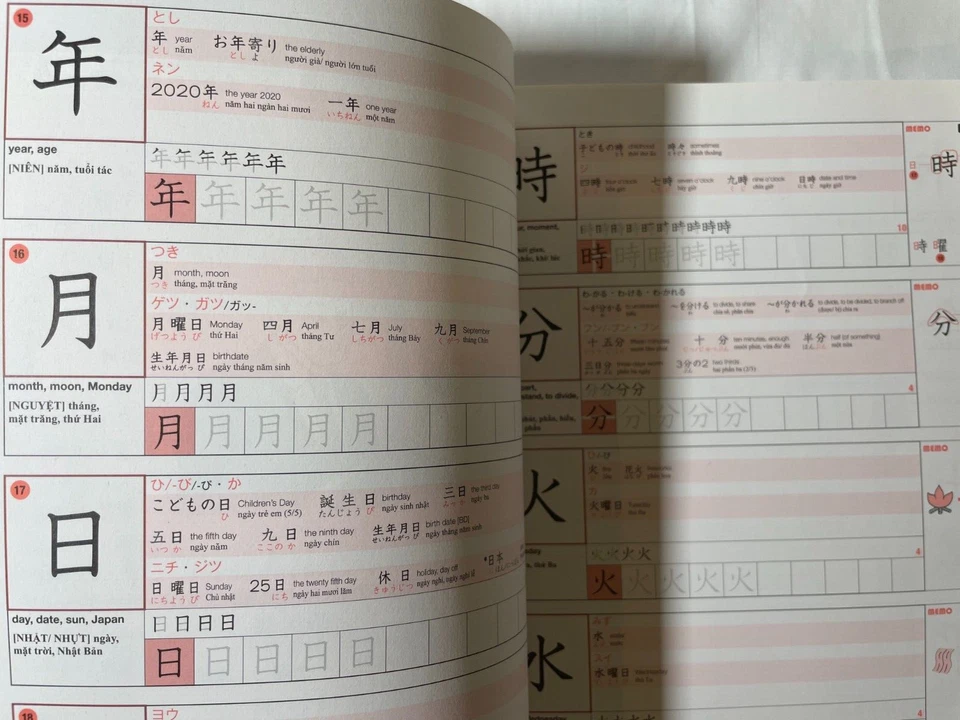 15
年
とし
年 year お年寄り the elderly
とし năm とし よ người già/ người lớn tuổi
ネン
2020年 the year 2020 一年 one year
ねん năm hai ngàn hai mươi いちねん một năm
year, age
[NIÊN] năm, tuổi tác
年年年年年年
年年年年年
16
月
つき
月 month, moon
つき tháng, mặt trăng
ゲツ・ガツ/ガッ-
月曜日 Monday 四月 April 七月 July 九月 September
げつよう び thứ Hai し がつ tháng Tư しちがつ tháng Bảy く がつ tháng Chín
生年月日 birthdate
せいねんがっ ぴ ngày tháng năm sinh
month, moon, Monday
[NGUYỆT] tháng,
mặt trăng, thứ Hai
月月月月
月月月月月
17
日
ひ/-び/-ぴ・か
こどもの日 Children's Day 誕生日 birthday 三日 the third day
ひ ngày trẻ em (5/5) たんじょう び ngày sinh nhật みっ か ngày ba
五日 the fifth day 九日 the ninth day 生年月日 birth date [BD]
いつ か ngày năm ここの か ngày chín せいねんがっ ぴ ngày tháng năm sinh
ニチ・ジツ
日曜日 Sunday 25日 the twenty fifth day 休日 holiday, day off *日本
にちよう び Chủ nhật にち ngày hai mươi lăm きゅうじつ ngày nghỉ, ngày nghỉ lễ
day, date, sun, Japan
[NHẬT/ NHỰT] ngày,
mặt trời, Nhật Bản
日日日日
日日日日日
18
ヨウ
時
とき
子どもの時 childhood 時々 sometimes
ジ
四時 four o'clock 七時 seven o'clock 九時 nine o'clock 日時 date and time
10
時時時時時
MEMO
時
時 曜
分
わ-かる・わ-ける・わ-かれる
〜が分かる 〜を分ける to divide, to share 〜が分かれる to divide, to be divided, to branch off
フン/-プン・ブン
十五分 fifteen minutes 十分 ten minutes, enough 半分 half (of something)
三日分 3分の2 two thirds
4
分分分分分
MEMO
分
火
ひ
火
カ
火曜日 Tuesday
火火火火
4
火火火火火
MEMO
水
みず
水 water
スイ
水曜日 Wednesday
4
MEMO